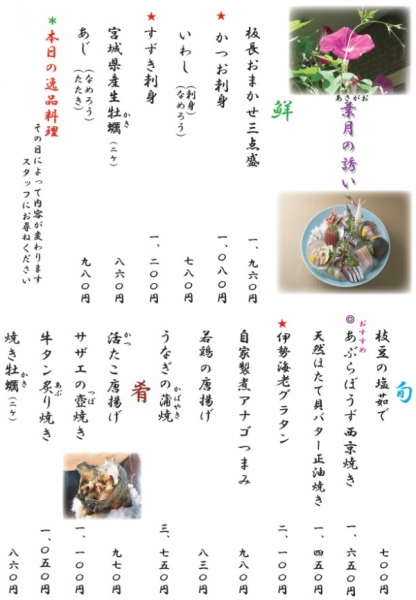 葉月の誘い
あさがお
鮮
板長おまかせ三点盛 一、九六〇円
★かつお刺身 一、〇八〇円
いわし(刺身)(なめろう) 七八〇円
★すずき刺身 一、二〇〇円
宮城県産生牡蠣(二ケ) 八六〇円
かき
あじ(なめろう)(たたき) 九八〇円
＊本日の逸品料理
その日によって内容が変わります
スタッフにお尋ねください
旬
枝豆の塩茹で 七〇〇円
おすすめ
◎あぶらぼうず西京焼き 一、六五〇円
天然ほたて貝バター正油焼き 一、四五〇円
★伊勢海老グラタン 二、一〇〇円
自家製煮アナゴつまみ 九八〇円
若鶏の唐揚げ 八三〇円
うなぎの蒲焼 三、七五〇円
かばやき
肴
活たこ唐揚げ 九七〇円
かつ
サザエの壺焼き 一、一〇〇円
つぼ
牛タン炙り焼き 一、〇五〇円
あぶ
焼き牡蠣(二ケ) 八六〇円
かき